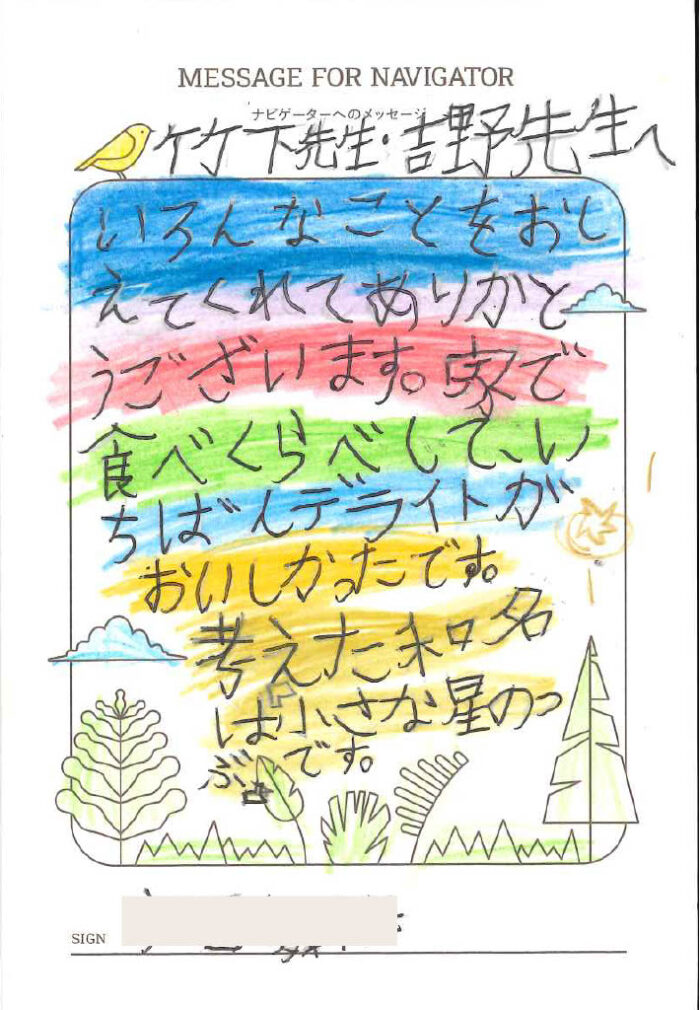 MESSAGE FOR NAVIGATOR
ナビゲーターへのメッセージ
竹下先生・吉野先生へ
いろんなことをおし
えてくれてありがと
うございます。家で
食べくらべして、い
ちばんデライトが
おいしかったです。
考えた和名
は小さな星のつ
ぶです。
SIGN